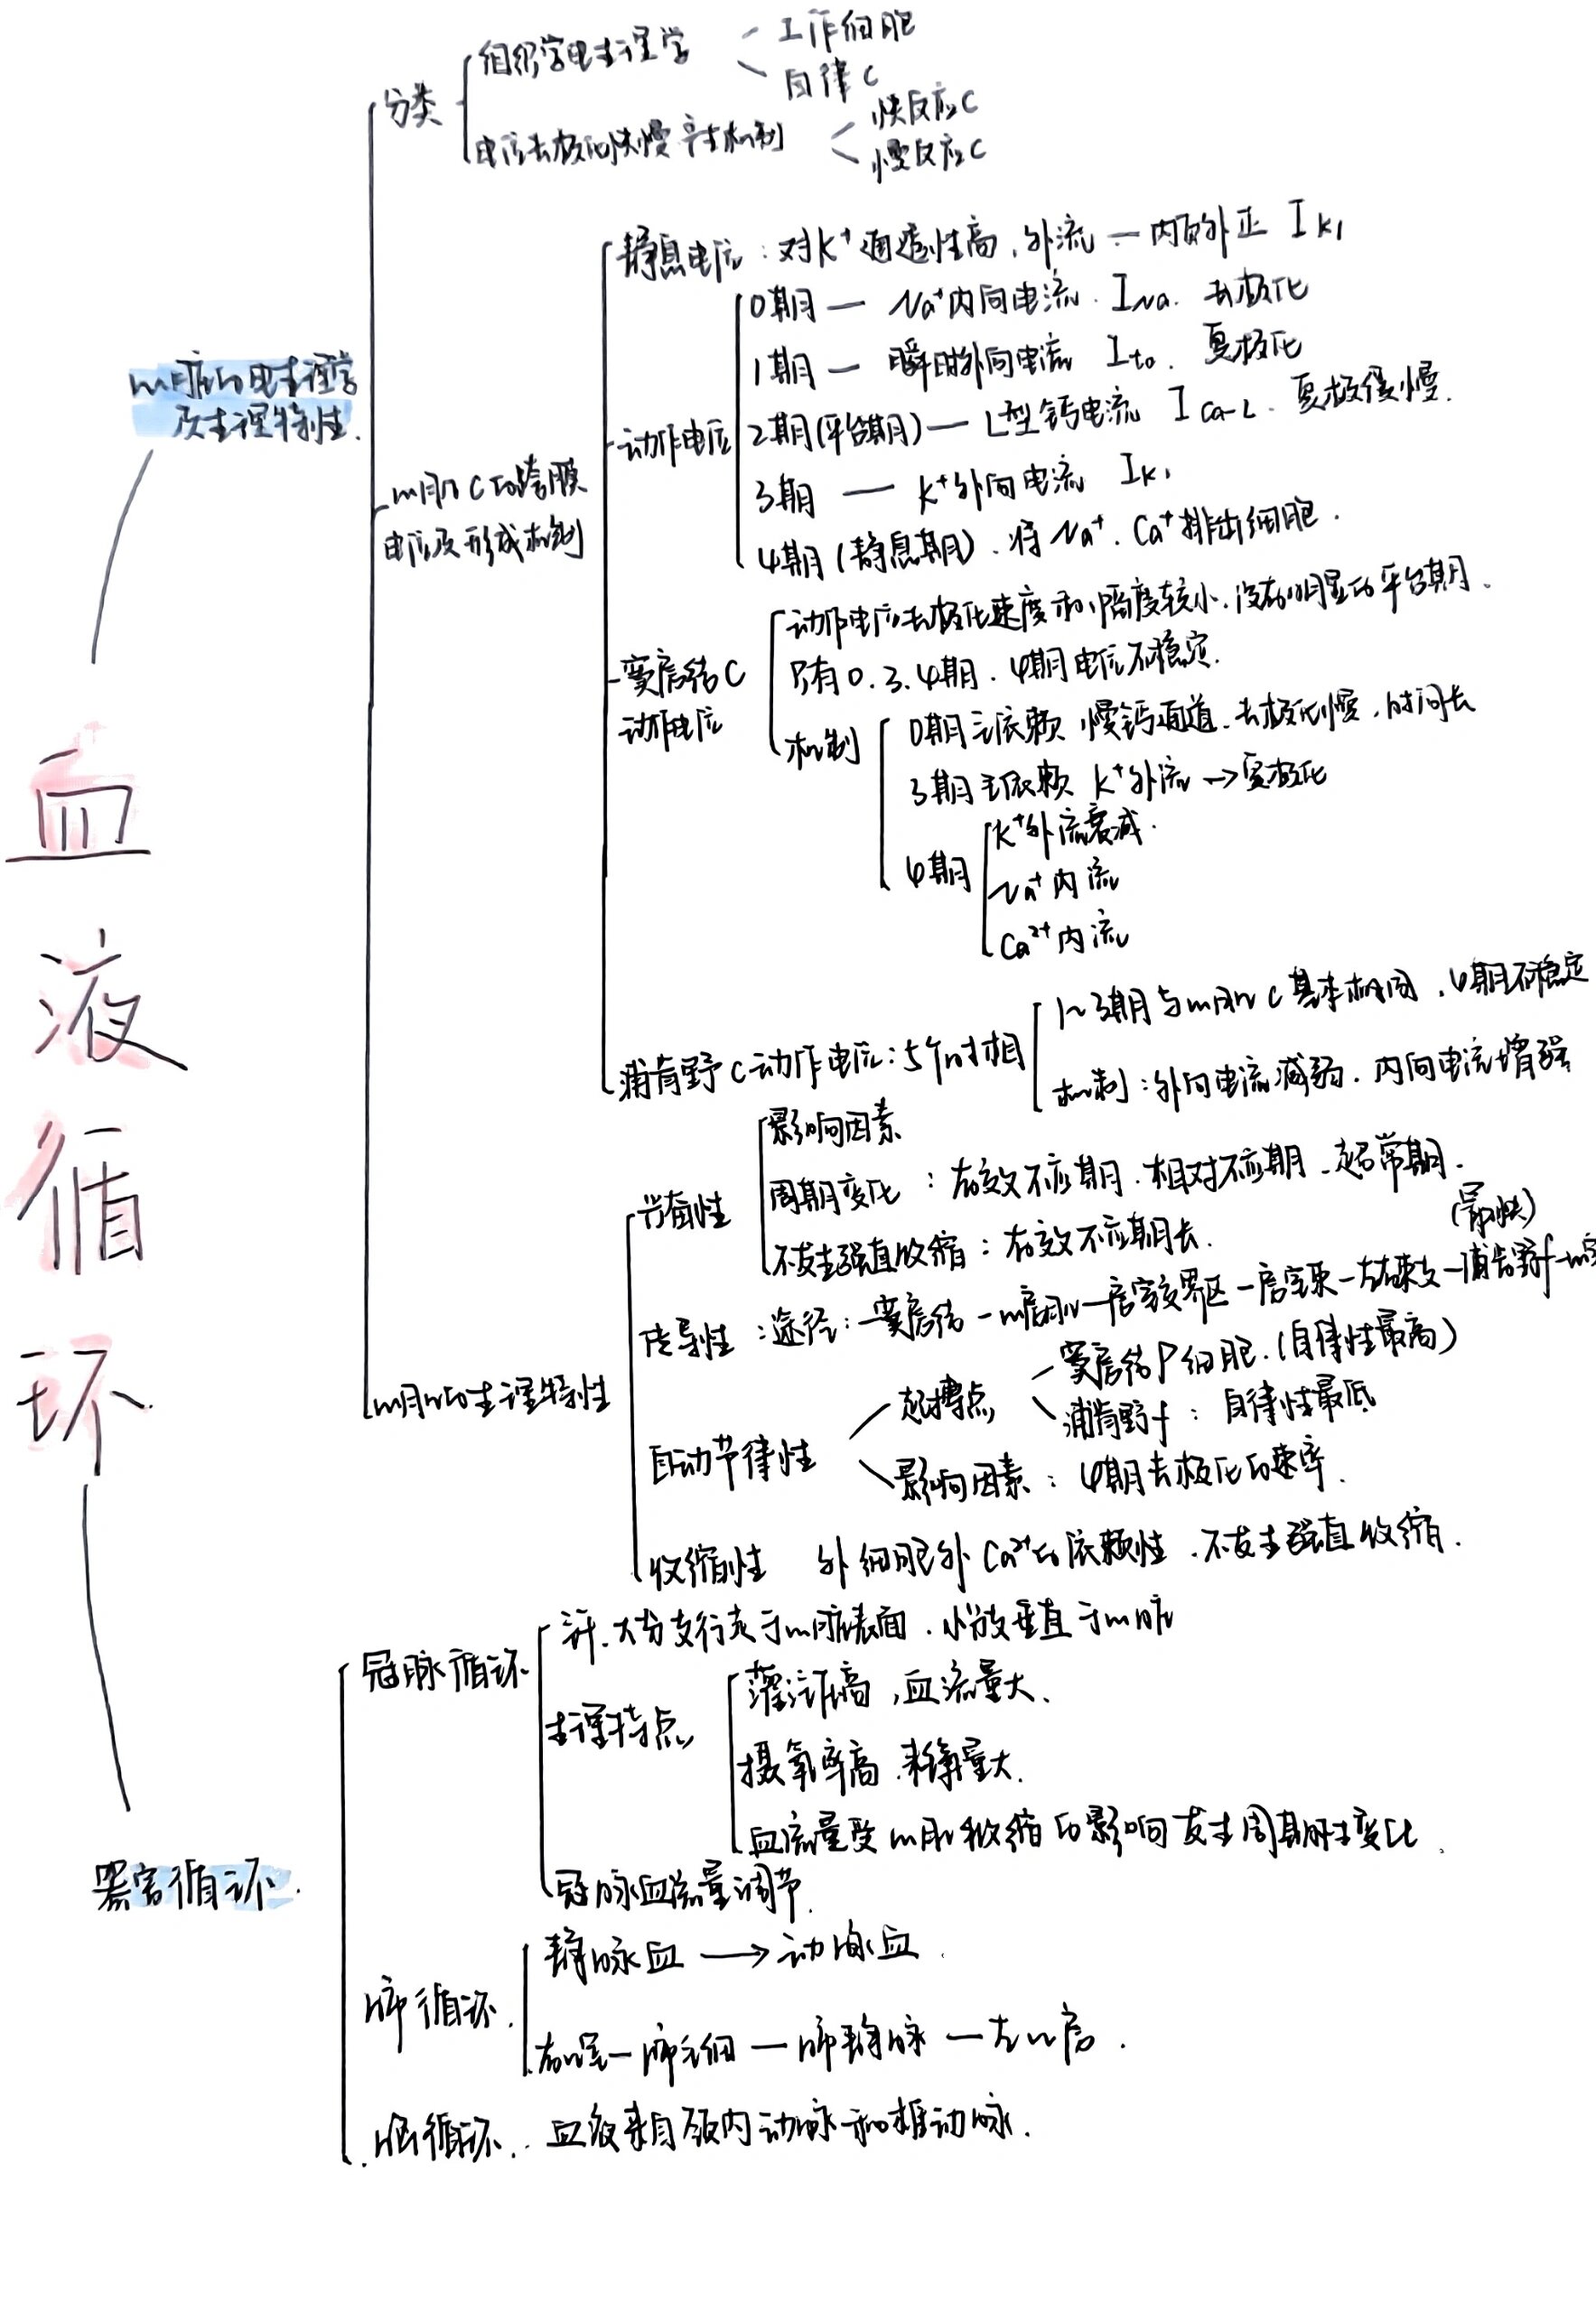 血液循环
心脏的电生理学
及生理特性.
分类
组织学电生理学
工作细胞
自律C
电位去极化快慢产生机制
快反应C
慢反应C
心肌C的跨膜
电位及形成机制
静息电位：对K⁺通透性高,外流—内负外正 IK1
动作电位
0期— Na⁺内向电流. INa. 去极化
1期— 瞬时外向电流 Ito. 复极化
2期(平台期)— L型钙电流 ICa-L. 复极缓慢.
3期 — K⁺外向电流 IK1
4期(静息期). 将Na⁺. Ca⁺排出细胞.
窦房结C
动作电位
动作电位去极化速度和幅度较小.没有明显的平台期.
只有0.3.4期. 4期电位不稳定.
机制
0期主依赖 慢钙通道.去极化慢.时间长
3期主依赖 K⁺外流→复极化
4期
K⁺外流衰减.
Na⁺内流
Ca²⁺内流
浦肯野C动作电位:5个时相
1~3期与心肌C基本相同.4期不稳定
机制:外向电流减弱. 内向电流增强
心肌的生理特性
兴奋性
影响因素
周期变化：有效不应期.相对不应期.超常期.
不发生强直收缩：有效不应期长.
(最快)
传导性:途径:—窦房结—心房肌—房室交界区—房室束—左右束支—浦肯野f—心室
自动节律性
起搏点
窦房结P细胞.(自律性最高)
浦肯野f：自律性最低
影响因素：4期去极化的速率.
收缩性 外细胞外Ca²⁺的依赖性.不发生强直收缩.
器官循环.
冠脉循环
大分支行走于心脏表面.小分支垂直于心脏
生理特点
灌注压高,血流量大.
摄氧率高.耗氧量大.
血流量受心肌收缩的影响发生周期性变化.
冠脉血流量调节.
肺循环.
静脉血→动脉血.
右心室—肺毛细—肺静脉—左心房.
脑循环. 血液来自颈内动脉和椎动脉.